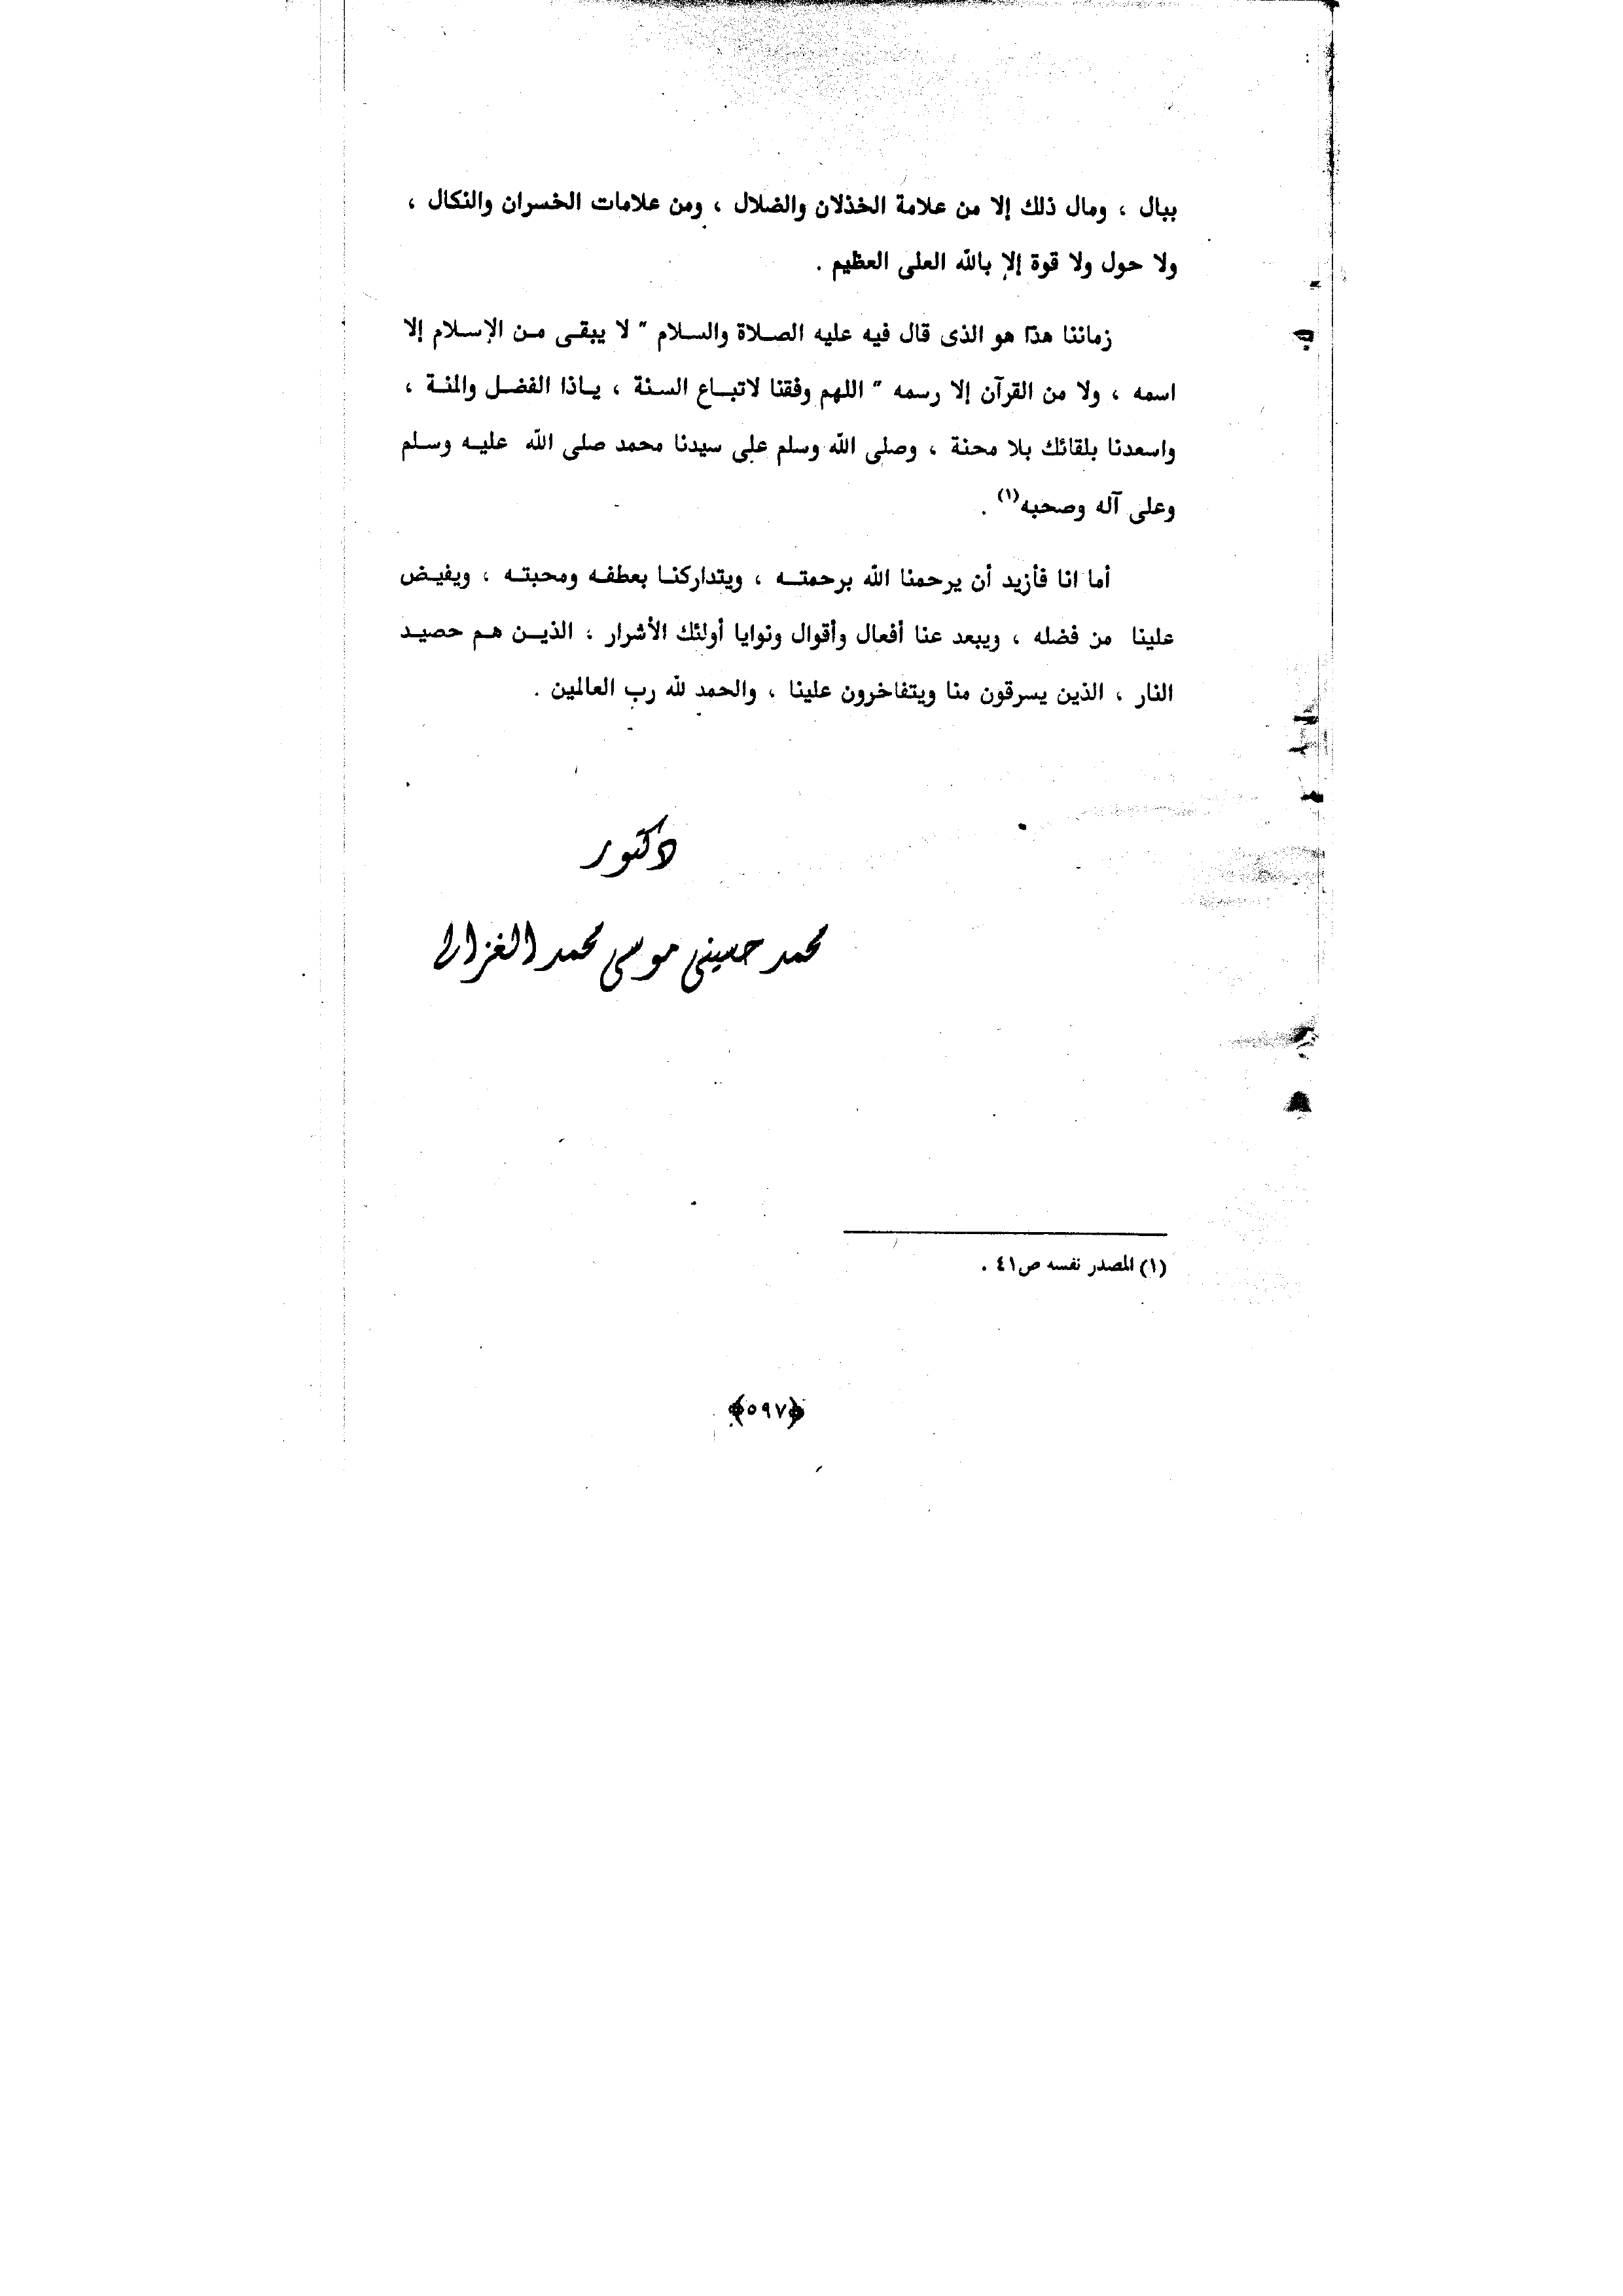 ببال ، ومال ذلك إلا من علامة الخذلان والضلال ، ومن علامات الخسران والنكال ،
ولا حول ولا قوة إلا بالله العلى العظيم .
زماننا هذا هو الذى قال فيه عليه الصلاة والسلام " لا يبقى من الإسلام إلا
اسمه ، ولا من القرآن إلا رسمه " اللهم وفقنا لاتباع السنة ، ياذا الفضل والمنة ،
واسعدنا بلقائك بلا محنة ، وصلى الله وسلم على سيدنا محمد صلى الله عليه وسلم
وعلى آله وصحبه(١) .
أما انا فأزيد أن يرحمنا الله برحمته ، ويتداركنا بعطفه ومحبته ، ويفيض
علينا من فضله ، ويبعد عنا أفعال وأقوال ونوايا أولئك الأشرار ، الذين هم حصيد
النار ، الذين يسرقون منا ويتفاخرون علينا ، والحمد لله رب العالمين .
دكتور
محمد حسيني موسى محمد الغزالى
(١) المصدر نفسه ص٤١ .
﴿٥٩٧﴾